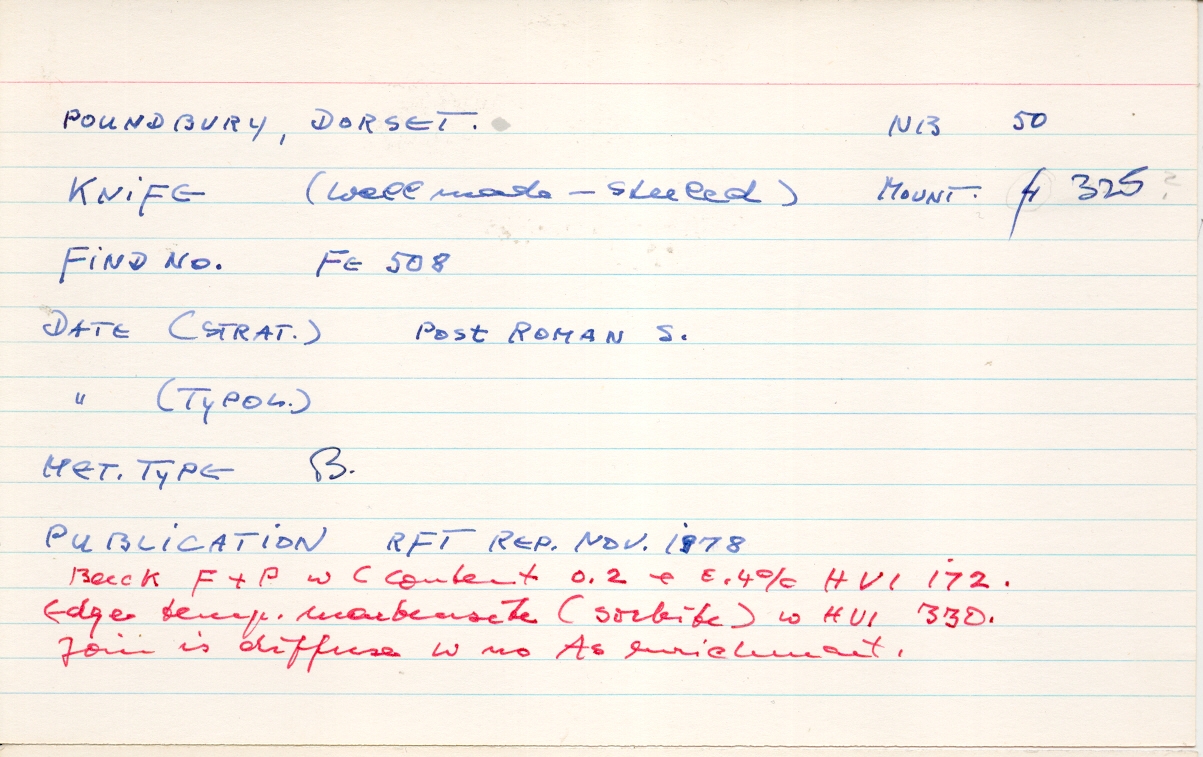 POUNDBURY, DORSET. NB 50
KNIFE (well made – steeled) MOUNT. 325
FIND NO. FE 508
DATE (STRAT.) POST ROMAN S.
" (TYPOL.)
MET. TYPE B.
PUBLICATION RFT REP. NOV. 1978
Back F + P w C content 0.2 0.4% HV1 172.
Edge temp. martensite (sorbite) w HV1 330.
Join is diffuse w no As enrichment.